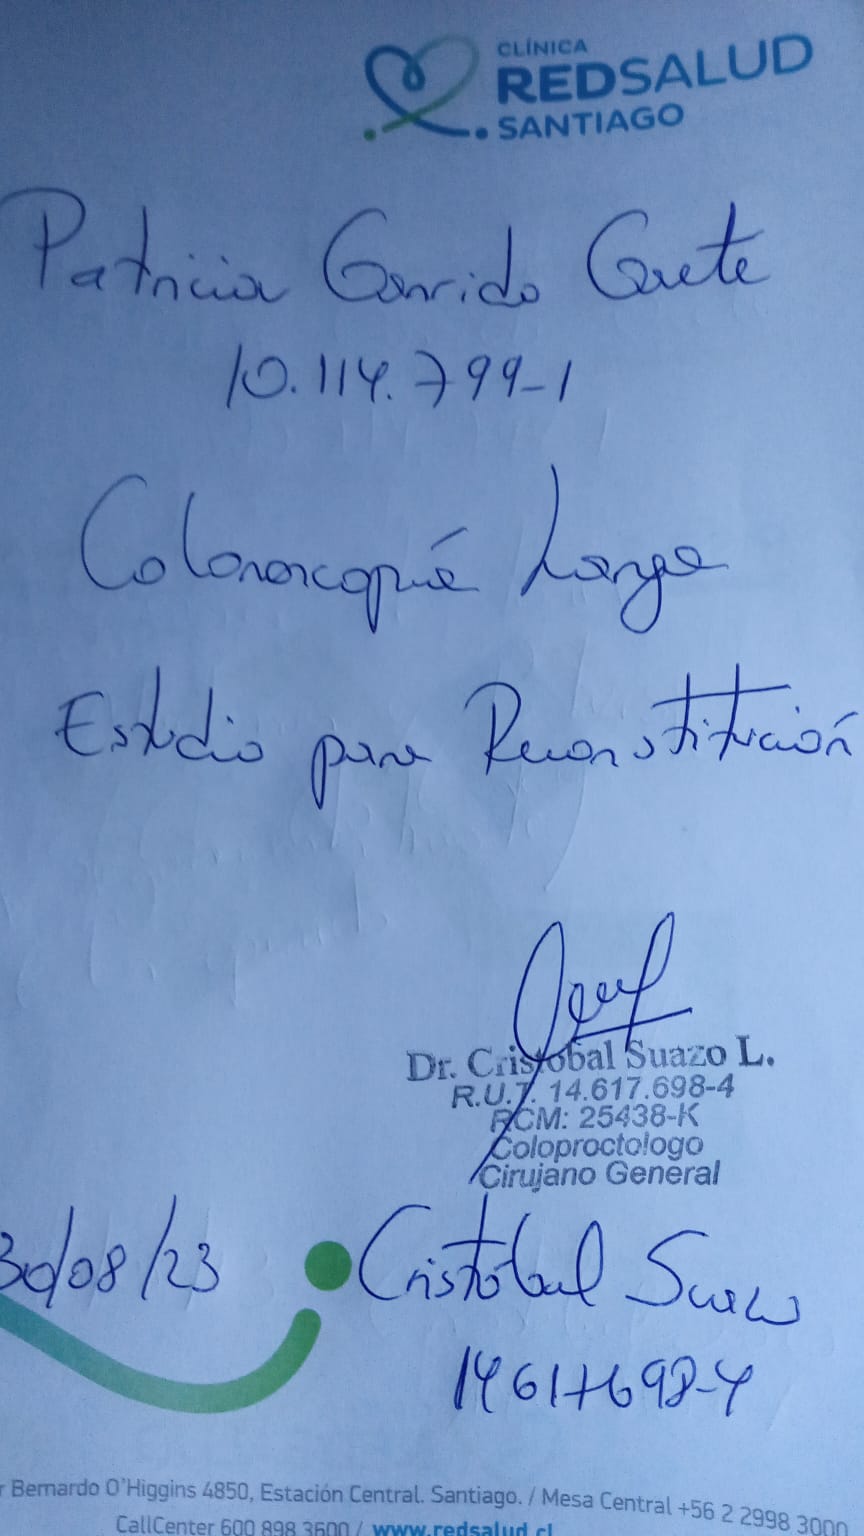 CLÍNICA
REDSALUD
SANTIAGO
Patricia Garrido Gaete
10.114.799-1
Colonoscopía Larga
Estudio para Reconstitución
Dr. Cristobal Suazo L.
R.U.T. 14.617.698-4
RCM: 25438-K
Coloproctologo
Cirujano General
30/08/23
Cristobal Suazo
14617698-4
r Bernardo O'Higgins 4850, Estación Central. Santiago. / Mesa Central +56 2 2998 3000
CallCenter 600 898 3600 / www.redsalud.cl